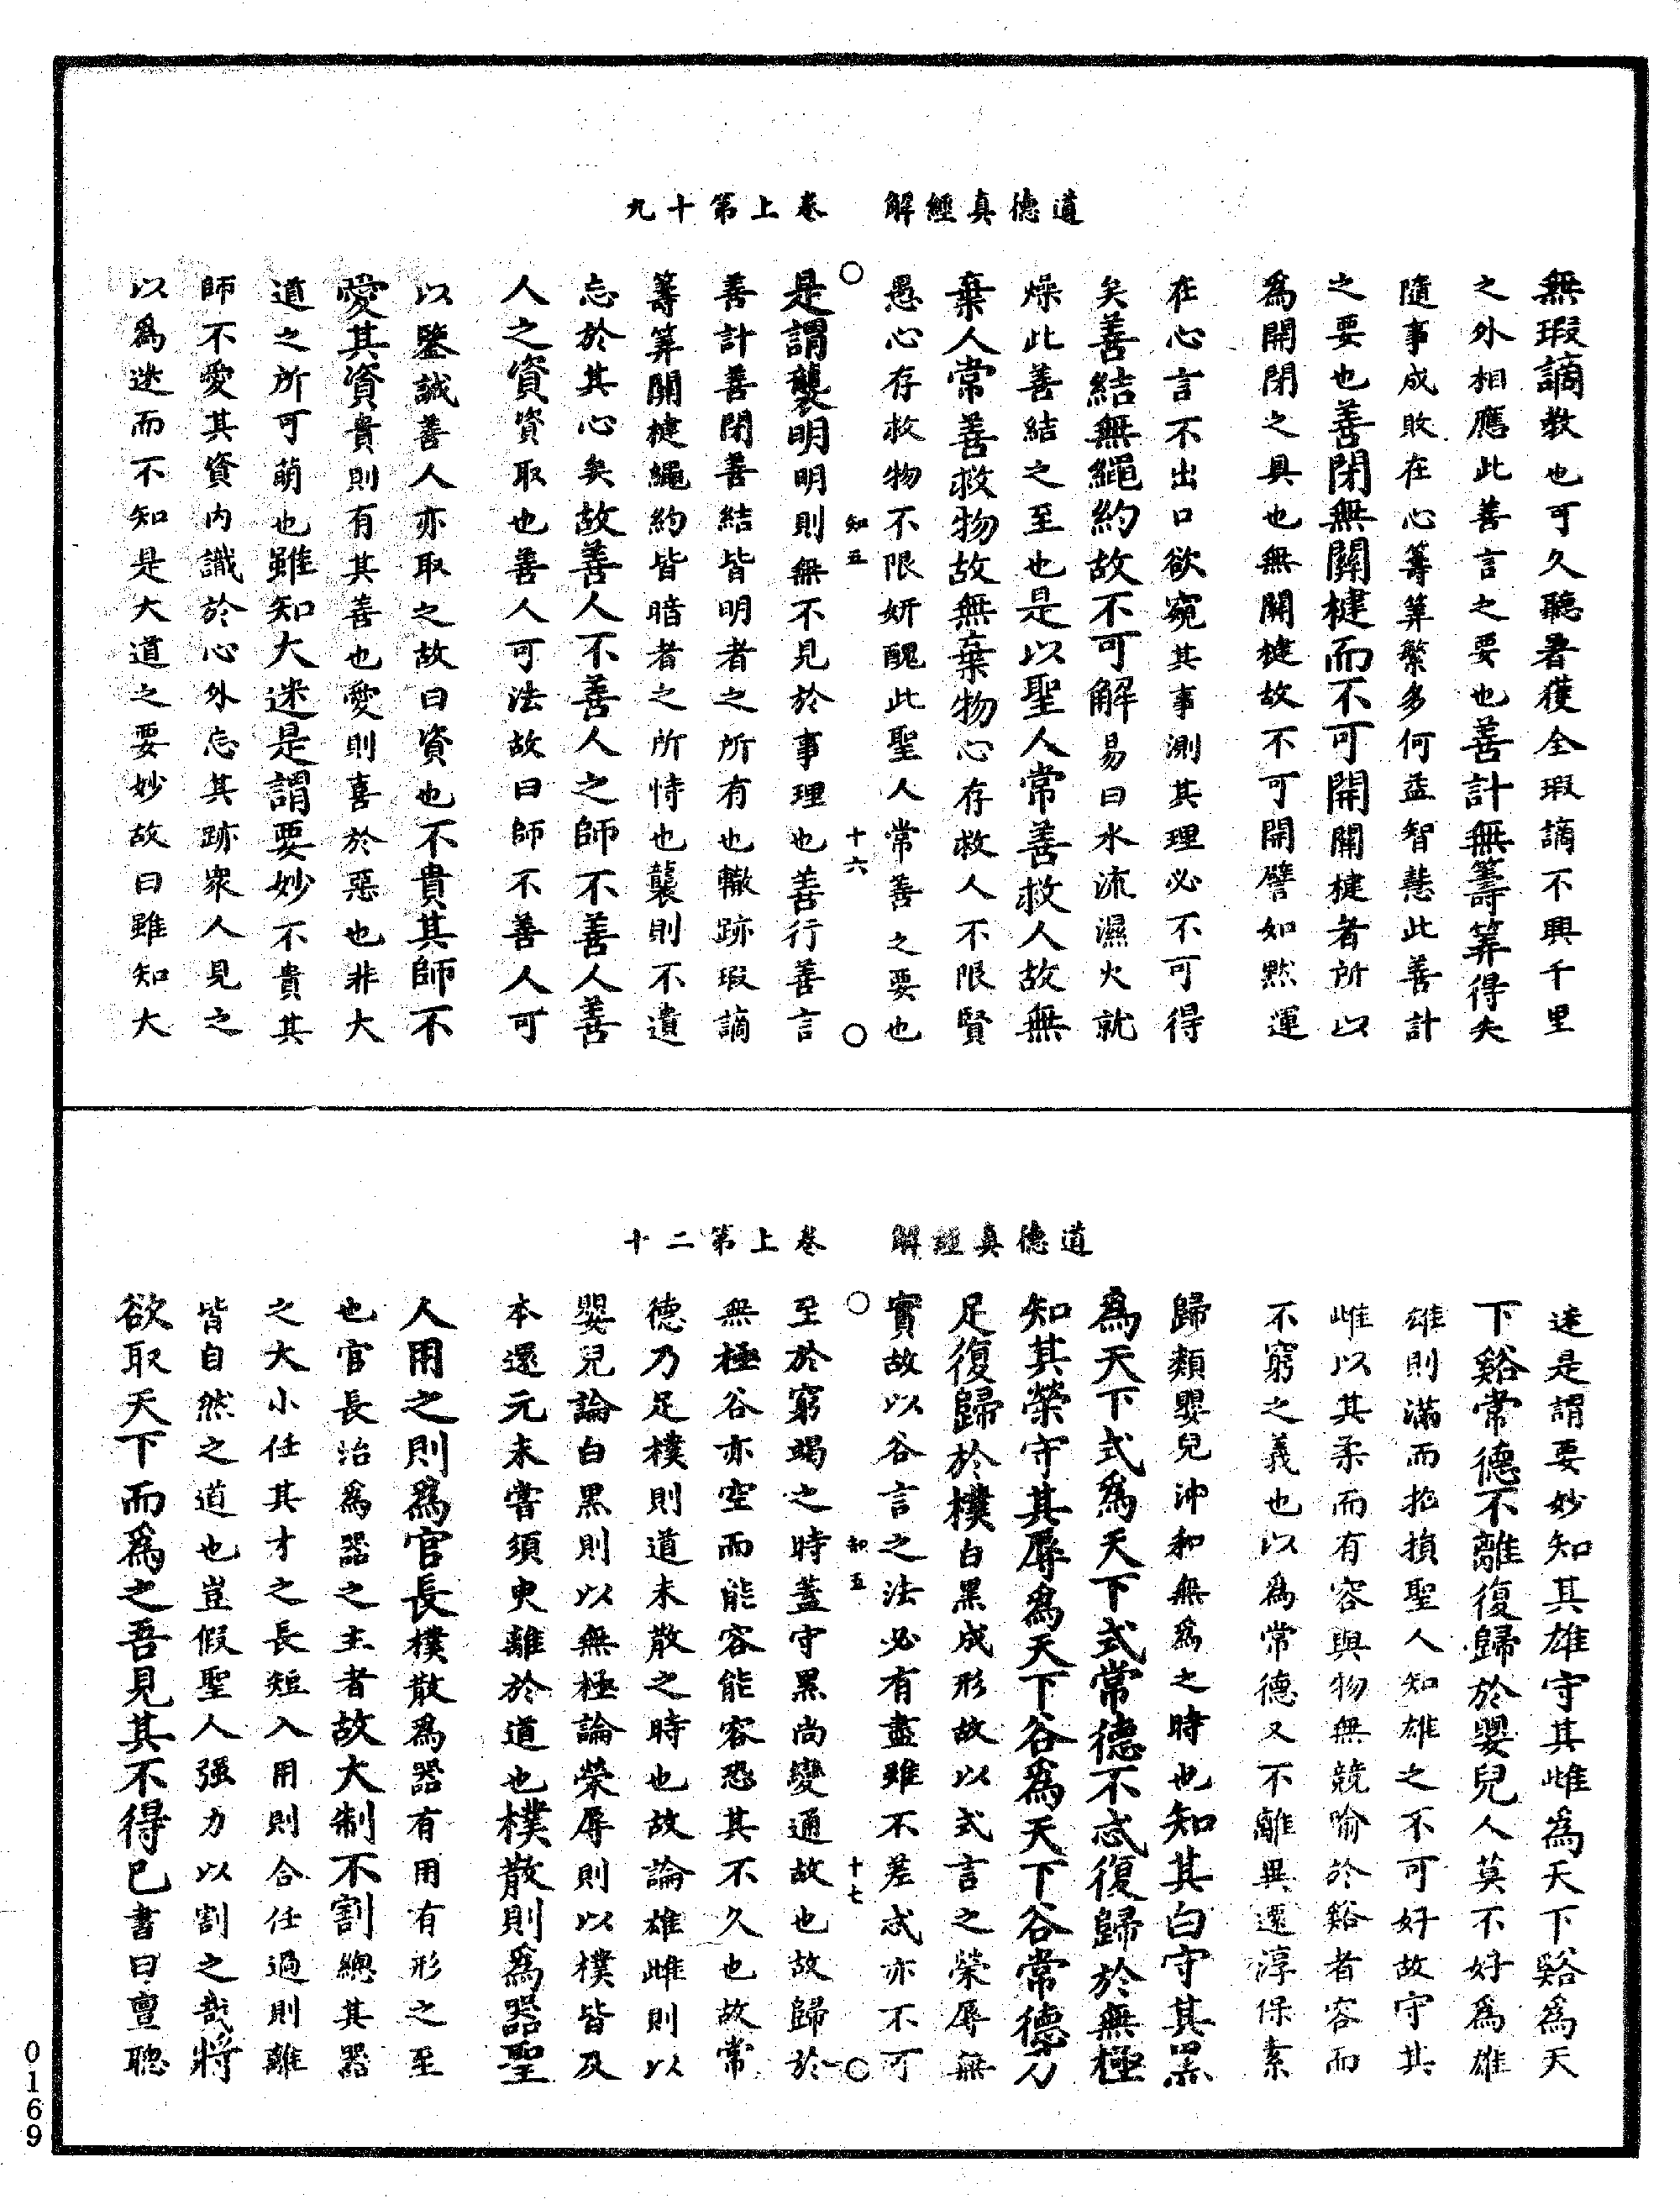 道德真經解　卷上第十九
無瑕謫教也可久聽者獲全瑕謫不興千里
之外相應此善言之要也善計無籌筭得失
隨事成敗在心籌筭繁多何益智慧此善計
之要也善閉無關楗而不可開關楗者所以
為開閉之具也無關楗故不可開譬如默運
在心言不出口欲窺其事測其理必不可得
矣善結無繩約故不可解易曰水流濕火就
燥此善結之至也是以聖人常善救人故無
棄人常善救物故無棄物心存救人不限賢
愚心存救物不限妍醜此聖人常善之要也
知五　十六
是謂襲明明則無不見於事理也善行善言
善計善閉善結皆明者之所有也轍跡瑕謫
籌筭關楗繩約皆暗者之所恃也襲則不遺
忘於其心矣故善人不善人之師不善人善
人之資資取也善人可法故曰師不善人可
以鑒誡善人亦取之故曰資也不貴其師不
愛其資貴則有其善也愛則喜於惡也非大
道之所可萌也雖知大迷是謂要妙不貴其
師不愛其資內識於心外忘其跡眾人見之
以為迷而不知是大道之要妙故曰雖知大
道德真經解　卷上第二十
迷是謂要妙知其雄守其雌為天下谿為天
下谿常德不離復歸於嬰兒人莫不好為雄
雄則滿而招損聖人知雄之不可好故守其
雌以其柔而有容與物無競喻於谿者容而
不窮之義也以為常德又不離異還淳保素
歸類嬰兒沖和無為之時也知其白守其黑
為天下式為天下式常德不忒復歸於無極
知其榮守其辱為天下谷為天下谷常德乃
足復歸於樸白黑成形故以式言之榮辱無
實故以谷言之法必有盡雖不差忒亦不可
知五　十七
至於窮竭之時蓋守黑尚變通故也故歸於
無極谷亦空而能容能容恐其不久也故常
德乃足樸則道未散之時也故論雄雌則以
嬰兒論白黑則以無極論榮辱則以樸皆及
本還元未嘗須臾離於道也樸散則為器聖
人用之則為官長樸散為器有用有形之至
也官長治為器之主者故大制不割總其器
之大小任其才之長短入用則合任過則離
皆自然之道也豈假聖人強力以割之哉將
欲取天下而為之吾見其不得已書曰亶聰
0169